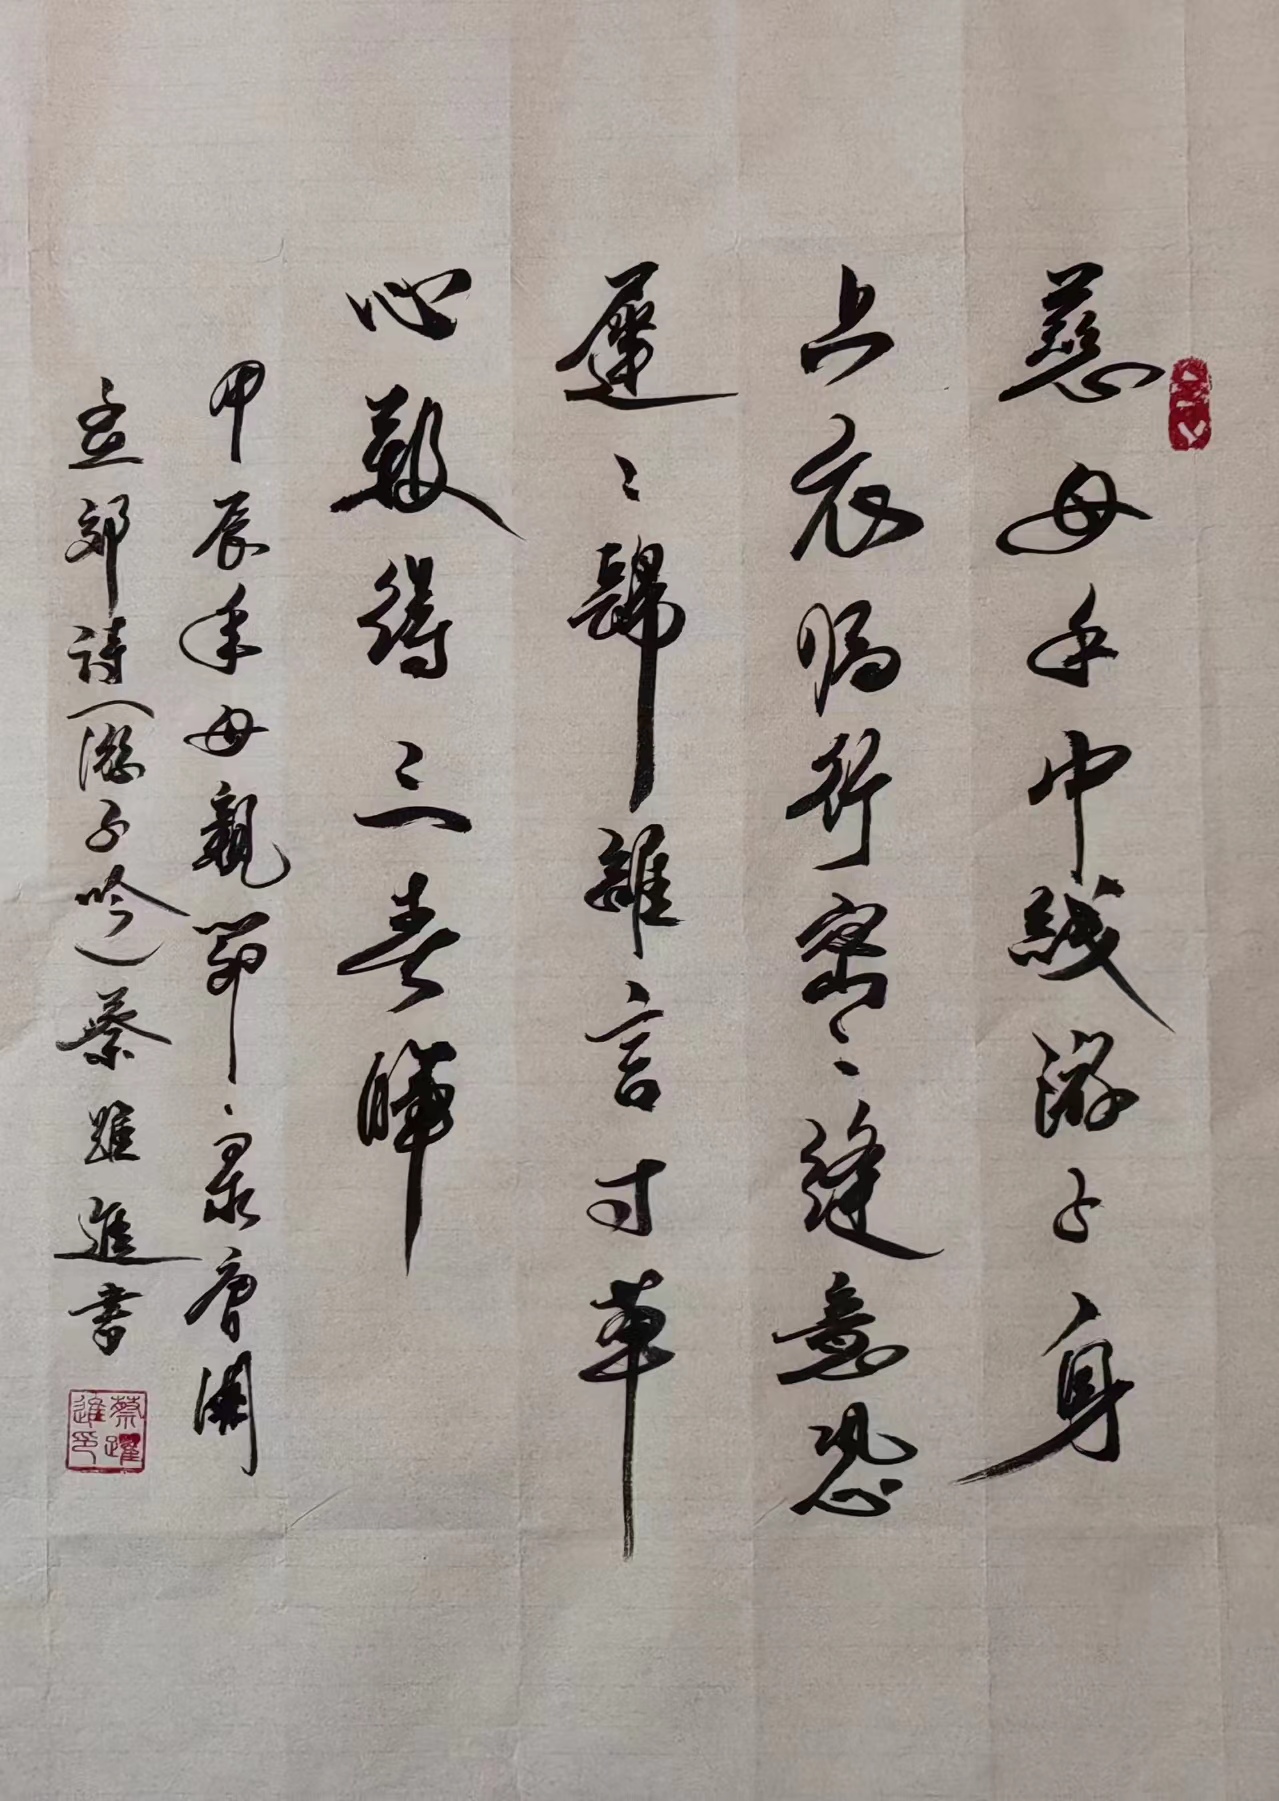 慈母手中线游子身
上衣临行密密缝意恐
遲遲歸誰言寸草
心報得三春暉
甲辰年母親節录唐
孟郊詩(游子吟)蔡躍進書
蔡躍進印